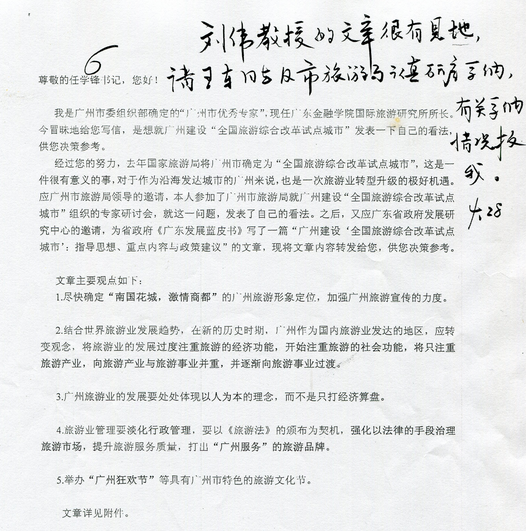 刘伟教授的文章很有见地，
请王东同志及市旅游局认真研究采纳，
有关采纳
情况报
我。
4.28
6
尊敬的任学锋书记，您好！
我是广州市委组织部确定的“广州市优秀专家”，现任广东金融学院国际旅游研究所所长。
今冒昧地给您写信，是想就广州建设“全国旅游综合改革试点城市”发表一下自己的看法，
供您决策参考。
经过您的努力，去年国家旅游局将广州市确定为“全国旅游综合改革试点城市”，这是一
件很有意义的事，对于作为沿海发达城市的广州来说，也是一次旅游业转型升级的极好机遇。
应广州市旅游局领导的邀请，本人参加了广州市旅游局就广州建设“全国旅游综合改革试点
城市”组织的专家研讨会，就这一问题，发表了自己的看法。之后，又应广东省政府发展研
究中心的邀请，为省政府《广东发展蓝皮书》写了一篇“广州建设‘全国旅游综合改革试点
城市’：指导思想、重点内容与政策建议”的文章，现将文章内容转发给您，供您决策参考。
文章主要观点如下：
1.尽快确定“南国花城，激情商都”的广州旅游形象定位，加强广州旅游宣传的力度。
2.结合世界旅游业发展趋势，在新的历史时期，广州作为国内旅游业发达的地区，应转
变观念，将旅游业的发展过度注重旅游的经济功能，开始注重旅游的社会功能，将只注重
旅游产业，向旅游产业与旅游事业并重，并逐渐向旅游事业过渡。
3.广州旅游业的发展要处处体现以人为本的理念，而不是只打经济算盘。
4.旅游业管理要淡化行政管理，要以《旅游法》的颁布为契机，强化以法律的手段治理
旅游市场，提升旅游服务质量，打出“广州服务”的旅游品牌。
5.举办“广州狂欢节”等具有广州市特色的旅游文化节。
文章详见附件。